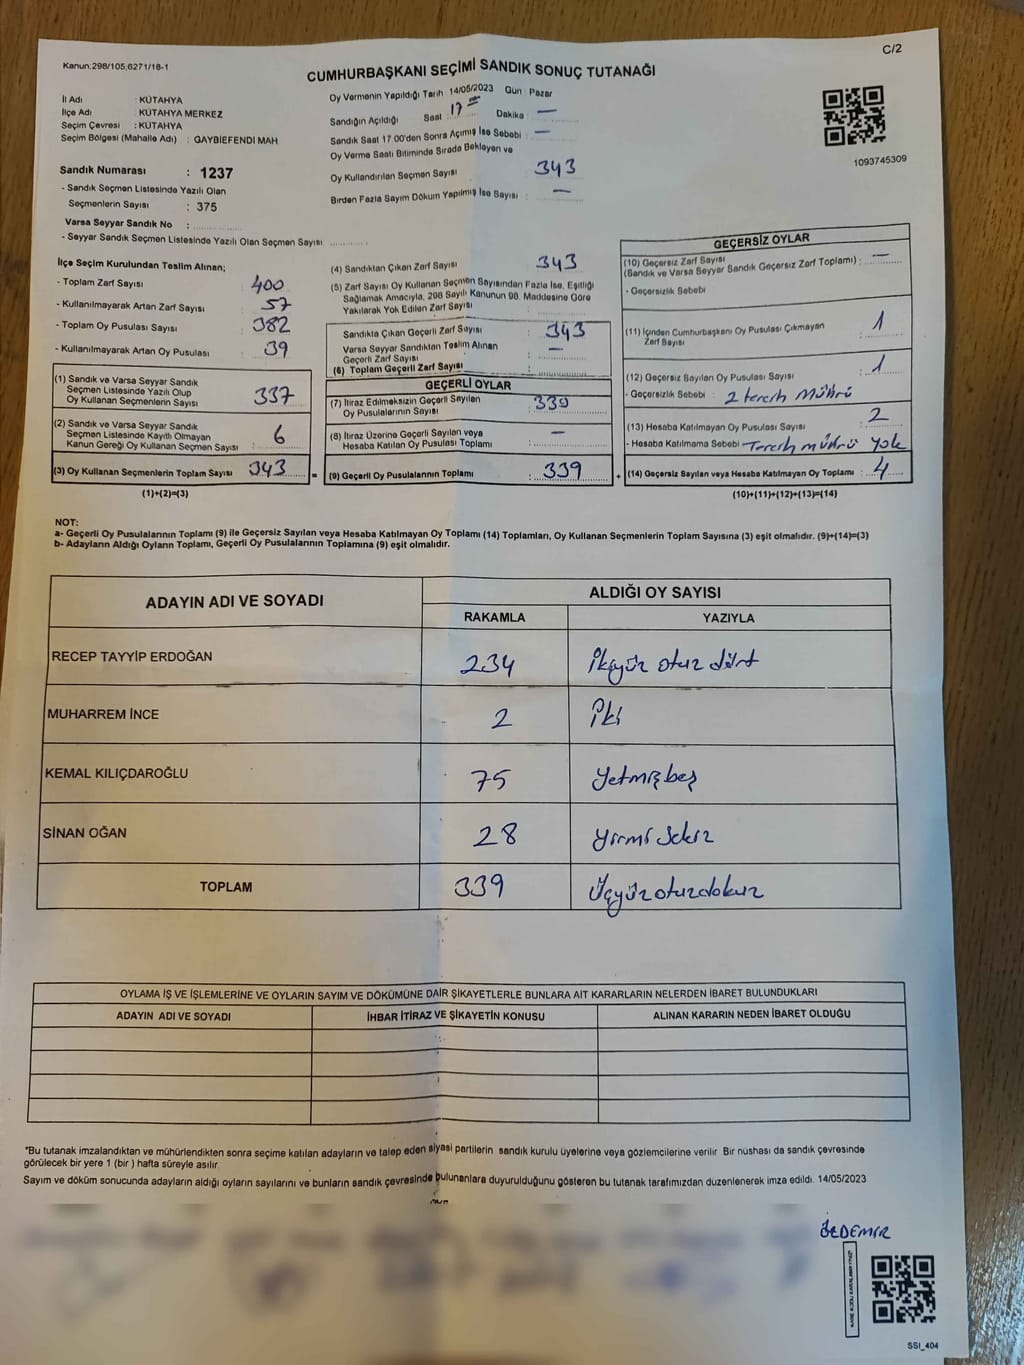 C/2
Kanun:298/105;6271/18-1
CUMHURBAŞKANI SEÇİMİ SANDIK SONUÇ TUTANAĞI
İl Adı : KÜTAHYA
İlçe Adı : KÜTAHYA MERKEZ
Seçim Çevresi : KÜTAHYA
Seçim Bölgesi (Mahalle Adı) : GAYBİEFENDİ MAH
Oy Vermenin Yapıldığı Tarih 14/05/2023 Gün : Pazar
Sandığın Açıldığı Saat : 17 Dakika : —
Sandık Saat 17.00'den Sonra Açılmış İse Sebebi : —
Oy Verme Saati Bitiminde Sırada Bekleyen ve
Oy Kullandırılan Seçmen Sayısı 343
Birden Fazla Sayım Döküm Yapılmış İse Sayısı : —
1093745309
Sandık Numarası : 1237
- Sandık Seçmen Listesinde Yazılı Olan
Seçmenlerin Sayısı : 375
Varsa Seyyar Sandık No :
- Seyyar Sandık Seçmen Listesinde Yazılı Olan Seçmen Sayısı:
İlçe Seçim Kurulundan Teslim Alınan;
- Toplam Zarf Sayısı : 400
- Kullanılmayarak Artan Zarf Sayısı : 57
- Toplam Oy Pusulası Sayısı : 382
- Kullanılmayarak Artan Oy Pusulası : 39
(1) Sandık ve Varsa Seyyar Sandık
Seçmen Listesinde Yazılı Olup
Oy Kullanan Seçmenlerin Sayısı : 337
(2) Sandık ve Varsa Seyyar Sandık
Seçmen Listesinde Kayıtlı Olmayan
Kanun Gereği Oy Kullanan Seçmen Sayısı : 6
(3) Oy Kullanan Seçmenlerin Toplam Sayısı : 343 =
(1)+(2)=(3)
(4) Sandıktan Çıkan Zarf Sayısı : 343
(5) Zarf Sayısı Oy Kullanan Seçmen Sayısından Fazla İse, Eşitliği
Sağlamak Amacıyla, 298 Sayılı Kanunun 98. Maddesine Göre
Yakılarak Yok Edilen Zarf Sayısı :
Sandıkta Çıkan Geçerli Zarf Sayısı : 343
Varsa Seyyar Sandıktan Teslim Alınan
Geçerli Zarf Sayısı : —
(6) Toplam Geçerli Zarf Sayısı :
GEÇERLİ OYLAR
(7) İtiraz Edilmeksizin Geçerli Sayılan
Oy Pusulalarının Sayısı : 339
(8) İtiraz Üzerine Geçerli Sayılan veya
Hesaba Katılan Oy Pusulası Toplamı : —
(9) Geçerli Oy Pusulalarının Toplamı : 339 +
GEÇERSİZ OYLAR
(10) Geçersiz Zarf Sayısı
(Sandık ve Varsa Seyyar Sandık Geçersiz Zarf Toplamı) : —
- Geçersizlik Sebebi :
(11) İçinden Cumhurbaşkanı Oy Pusulası Çıkmayan
Zarf Sayısı : 1
(12) Geçersiz Sayılan Oy Pusulası Sayısı : 1
- Geçersizlik Sebebi : 2 tercih Mührü
(13) Hesaba Katılmayan Oy Pusulası Sayısı : 2
- Hesaba Katılmama Sebebi : Tercih mührü yok
(14) Geçersiz Sayılan veya Hesaba Katılmayan Oy Toplamı : 4
(10)+(11)+(12)+(13)=(14)
NOT:
a- Geçerli Oy Pusulalarının Toplamı (9) ile Geçersiz Sayılan veya Hesaba Katılmayan Oy Toplamı (14) Toplamları, Oy Kullanan Seçmenlerin Toplam Sayısına (3) eşit olmalıdır. (9)+(14)=(3)
b- Adayların Aldığı Oyların Toplamı, Geçerli Oy Pusulalarının Toplamına (9) eşit olmalıdır.
ADAYIN ADI VE SOYADI
ALDIĞI OY SAYISI
RAKAMLA YAZIYLA
RECEP TAYYİP ERDOĞAN 234 İkiyüz otuz dört
MUHARREM İNCE 2 İki
KEMAL KILIÇDAROĞLU 75 Yetmişbeş
SİNAN OĞAN 28 Yirmi sekiz
TOPLAM 339 Üçyüz otuzdokuz
OYLAMA İŞ VE İŞLEMLERİNE VE OYLARIN SAYIM VE DÖKÜMÜNE DAİR ŞİKAYETLERLE BUNLARA AİT KARARLARIN NELERDEN İBARET BULUNDUKLARI
ADAYIN ADI VE SOYADI İHBAR İTİRAZ VE ŞİKAYETİN KONUSU ALINAN KARARIN NEDEN İBARET OLDUĞU
*Bu tutanak imzalandıktan ve mühürlendikten sonra seçime katılan adayların ve talep eden siyasi partilerin sandık kurulu üyelerine veya gözlemcilerine verilir. Bir nüshası da sandık çevresinde
görülecek bir yere 1 (bir) hafta süreyle asılır.
Sayım ve döküm sonucunda adayların aldığı oyların sayılarını ve bunların sandık çevresinde bulunanlara duyurulduğunu gösteren bu tutanak tarafımızdan düzenlenerek imza edildi. 14/05/2023
ÖZDEMİR
SSI_404